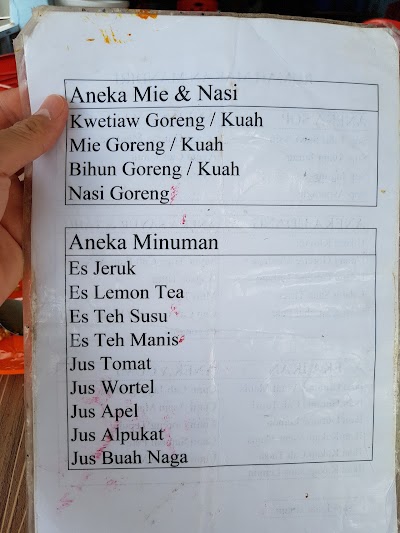 Aneka Mie & Nasi
Kwetiaw Goreng / Kuah
Mie Goreng / Kuah
Bihun Goreng / Kuah
Nasi Goreng
Aneka Minuman
Es Jeruk
Es Lemon Tea
Es Teh Susu
Es Teh Manis
Jus Tomat
Jus Wortel
Jus Apel
Jus Alpukat
Jus Buah Naga